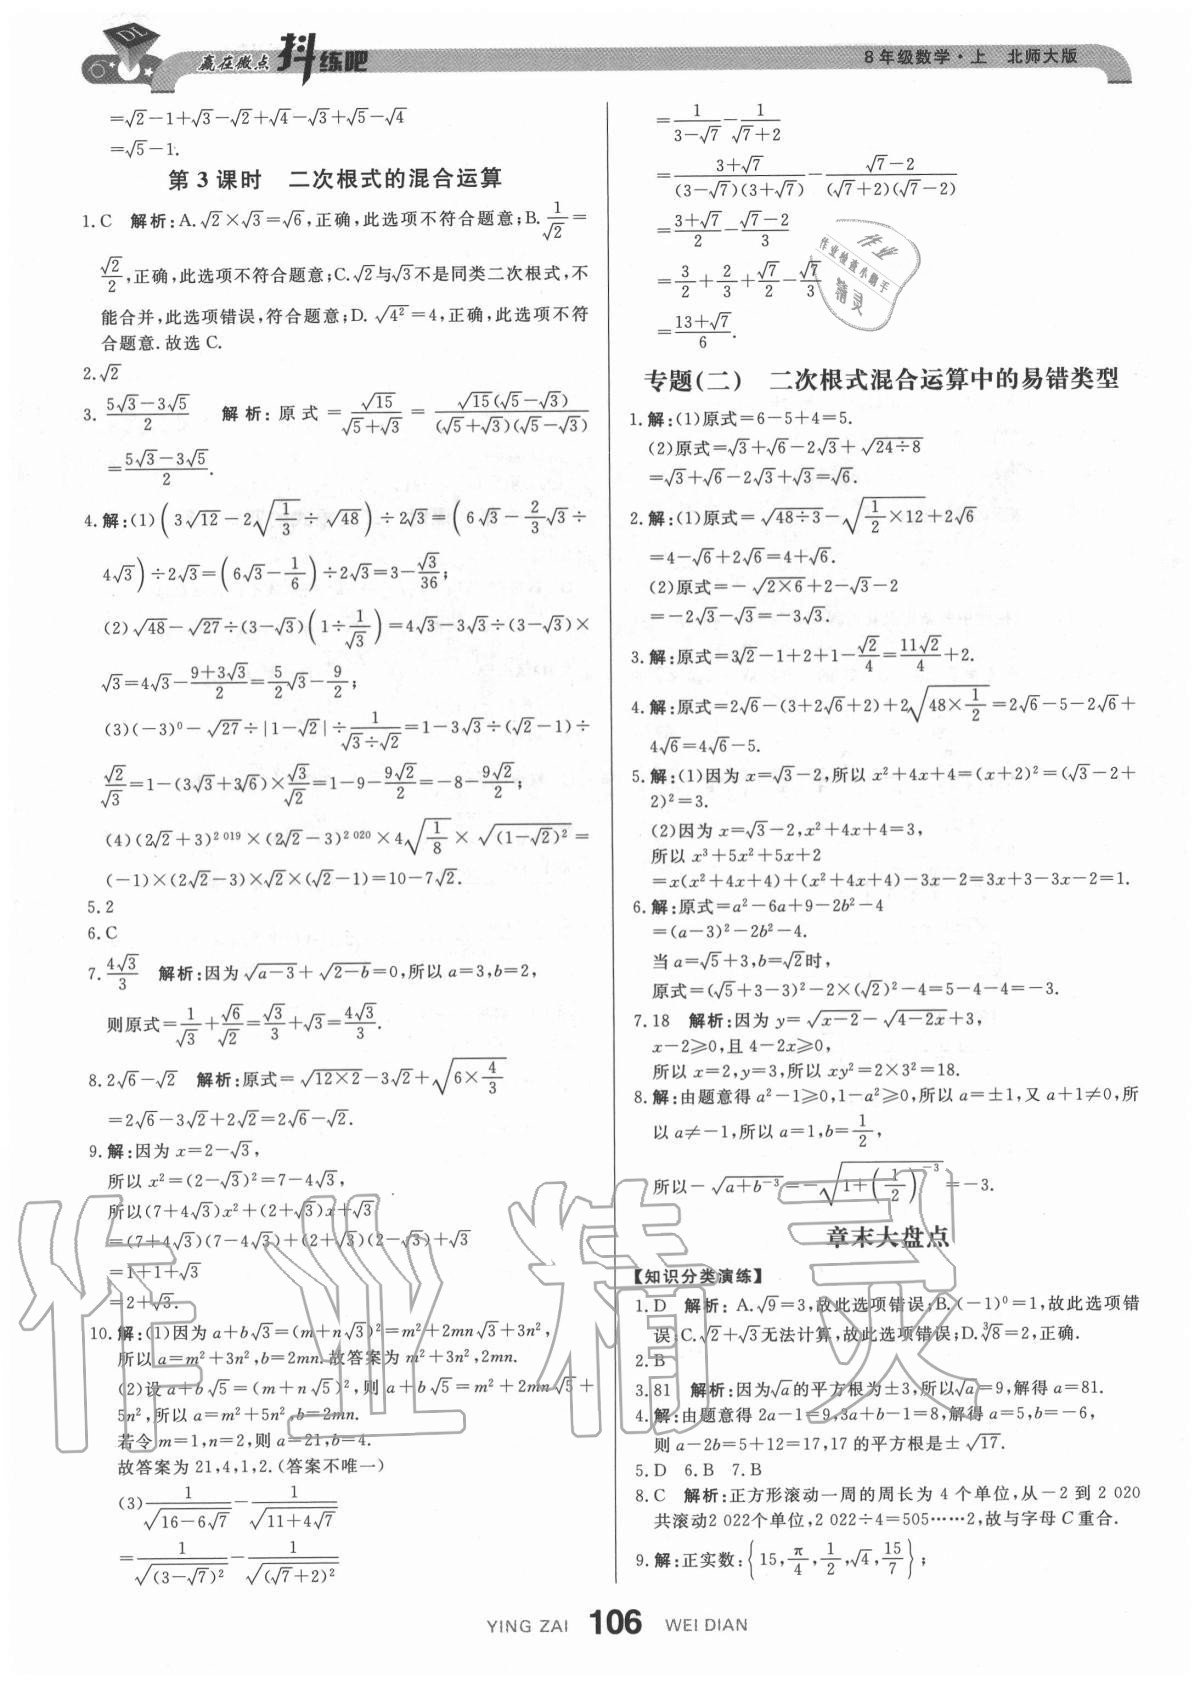 赢在微点 抖练吧
8年级数学·上 北师大版
=√2-1+√3-√2+√4-√3+√5-√4
=√5-1.
第3课时 二次根式的混合运算
1.C 解析:A.√2×√3=√6,正确,此选项不符合题意;B.1/√2=
√2/2,正确,此选项不符合题意;C.√2与√3不是同类二次根式,不
能合并,此选项错误,符合题意;D.√(4²)=4,正确,此选项不符
合题意.故选C.
2.√2
3.(5√3-3√5)/2 解析:原式=√15/(√5+√3)=√15(√5-√3)/((√5+√3)(√5-√3))
=(5√3-3√5)/2.
4.解:(1)(3√12-2√(1/3)÷√48)÷2√3=(6√3-(2/3)√3÷
4√3)÷2√3=(6√3-1/6)÷2√3=3-√3/36;
(2)√48-√27÷(3-√3)(1÷1/√3)=4√3-3√3÷(3-√3)×
√3=4√3-(9+3√3)/2=(5/2)√3-9/2;
(3)(-3)⁰-√27÷|1-√2|÷1/(√3÷√2)=1-3√3÷(√2-1)÷
√2/√3=1-(3√3+3√6)×√3/√2=1-9-9√2/2=-8-9√2/2;
(4)(2√2+3)^2 019×(2√2-3)^2 020×4√(1/8)×√((1-√2)²)=
(-1)×(2√2-3)×√2×(√2-1)=10-7√2.
5.2
6.C
7.4√3/3 解析:因为√(a-3)+√(2-b)=0,所以a=3,b=2,
则原式=1/√3+√6/√2=√3/3+√3=4√3/3.
8.2√6-√2 解析:原式=√(12×2)-3√2+√(6×4/3)
=2√6-3√2+2√2=2√6-√2.
9.解:因为x=2-√3,
所以x²=(2-√3)²=7-4√3,
所以(7+4√3)x²+(2+√3)x+√3
=(7+4√3)(7-4√3)+(2+√3)(2-√3)+√3
=1+1+√3
=2+√3.
10.解:(1)因为a+b√3=(m+n√3)²=m²+2mn√3+3n²,
所以a=m²+3n²,b=2mn.故答案为m²+3n²,2mn.
(2)设a+b√5=(m+n√5)²,则a+b√5=m²+2mn√5+
5n²,所以a=m²+5n²,b=2mn.
若令m=1,n=2,则a=21,b=4.
故答案为21,4,1,2.(答案不唯一)
(3)1/√(16-6√7)-1/√(11+4√7)
=1/√((3-√7)²)-1/√((√7+2)²)
=1/(3-√7)-1/(√7+2)
=(3+√7)/((3-√7)(3+√7))-(√7-2)/((√7+2)(√7-2))
=(3+√7)/2-(√7-2)/3
=3/2+2/3+√7/2-√7/3
=(13+√7)/6.
专题(二) 二次根式混合运算中的易错类型
1.解:(1)原式=6-5+4=5.
(2)原式=√3+√6-2√3+√(24÷8)
=√3+√6-2√3+√3=√6.
2.解:(1)原式=√(48÷3)-√(1/2×12)+2√6
=4-√6+2√6=4+√6.
(2)原式=-√(2×6)+2-√3-2
=-2√3-√3=-3√3.
3.解:原式=3√2-1+2+1-√2/4=11√2/4+2.
4.解:原式=2√6-(3+2√6+2)+2√(48×1/2)=2√6-5-2√6+
4√6=4√6-5.
5.解:(1)因为x=√3-2,所以x²+4x+4=(x+2)²=(√3-2+
2)²=3.
(2)因为x=√3-2,x²+4x+4=3,
所以x³+5x²+5x+2
=x(x²+4x+4)+(x²+4x+4)-3x-2=3x+3-3x-2=1.
6.解:原式=a²-6a+9-2b²-4
=(a-3)²-2b²-4.
当a=√5+3,b=√2时,
原式=(√5+3-3)²-2×(√2)²-4=5-4-4=-3.
7.18 解析:因为y=√(x-2)-√(4-2x)+3,
x-2≥0,且4-2x≥0,
所以x=2,y=3,所以xy²=2×3²=18.
8.解:由题意得a²-1≥0,1-a²≥0,所以a=±1,又a+1≠0,所
以a≠-1,所以a=1,b=1/2,
所以-√(a+b⁻³)=-√(1+(1/2)⁻³)=-3.
章末大盘点
【知识分类演练】
1.D 解析:A.√9=3,故此选项错误;B.(-1)⁰=1,故此选项错
误;C.√2+√3无法计算,故此选项错误;D.³√8=2,正确.
2.B
3.81 解析:因为√a的平方根为±3,所以√a=9,解得a=81.
4.解:由题意得2a-1=9,3a+b-1=8,解得a=5,b=-6,
则a-2b=5+12=17,17的平方根是±√17.
5.D 6.B 7.B
8.C 解析:正方形滚动一周的周长为4个单位,从-2到2 020
共滚动2 022个单位,2 022÷4=505……2,故与字母C重合.
9.解:正实数:{15,π/4,1/2,√4,15/7};
YING ZAI 106 WEI DIAN
作业精灵
作业
作业检查小助手
精灵